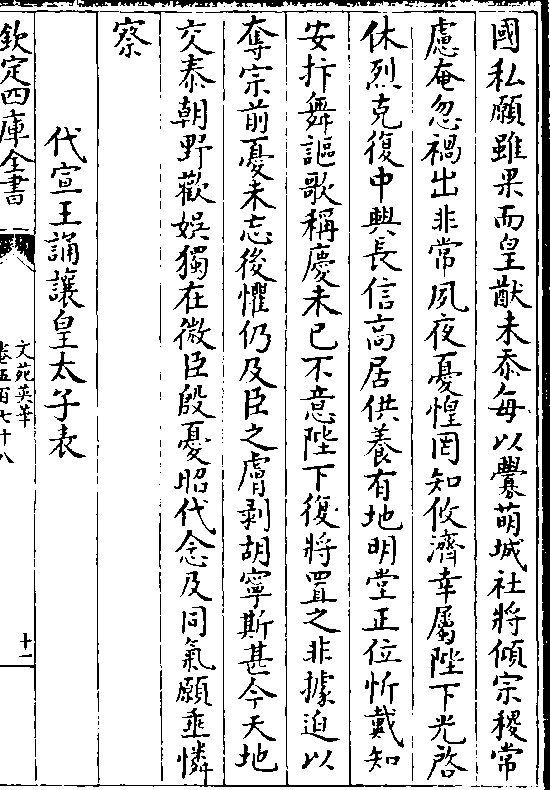 國私願雖果而皇猷未泰每以釁萌城社將傾宗稷常
慮奄忽禍出非常夙夜憂惶罔知攸濟幸屬陛下光啓
休烈克復中興長信高居供養有地明堂正位忻戴知
安抃舞謳歌稱慶未已不意陛下復將置之非據迫以
奪宗前憂未忘後懼仍及臣之膚剥胡寧斯甚今天地
交泰朝野歡娱獨在微臣殷憂昭代念及同氣願垂憐
察
代宣王誦讓皇太子表
欽定四庫全書
文苑英華
卷五百七十八
十一